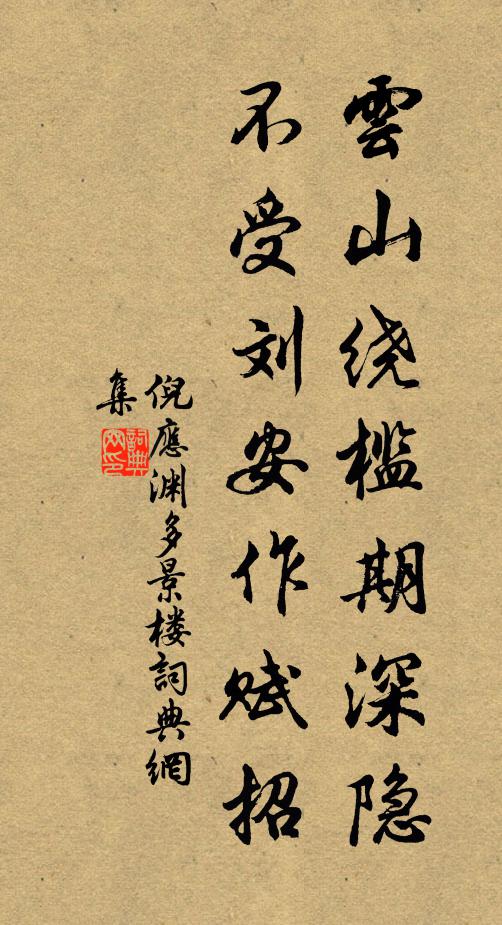 雲山绕槛期深隐
不受刘安作赋招
倪應渊多景楼詞典網
集
詞典
网印